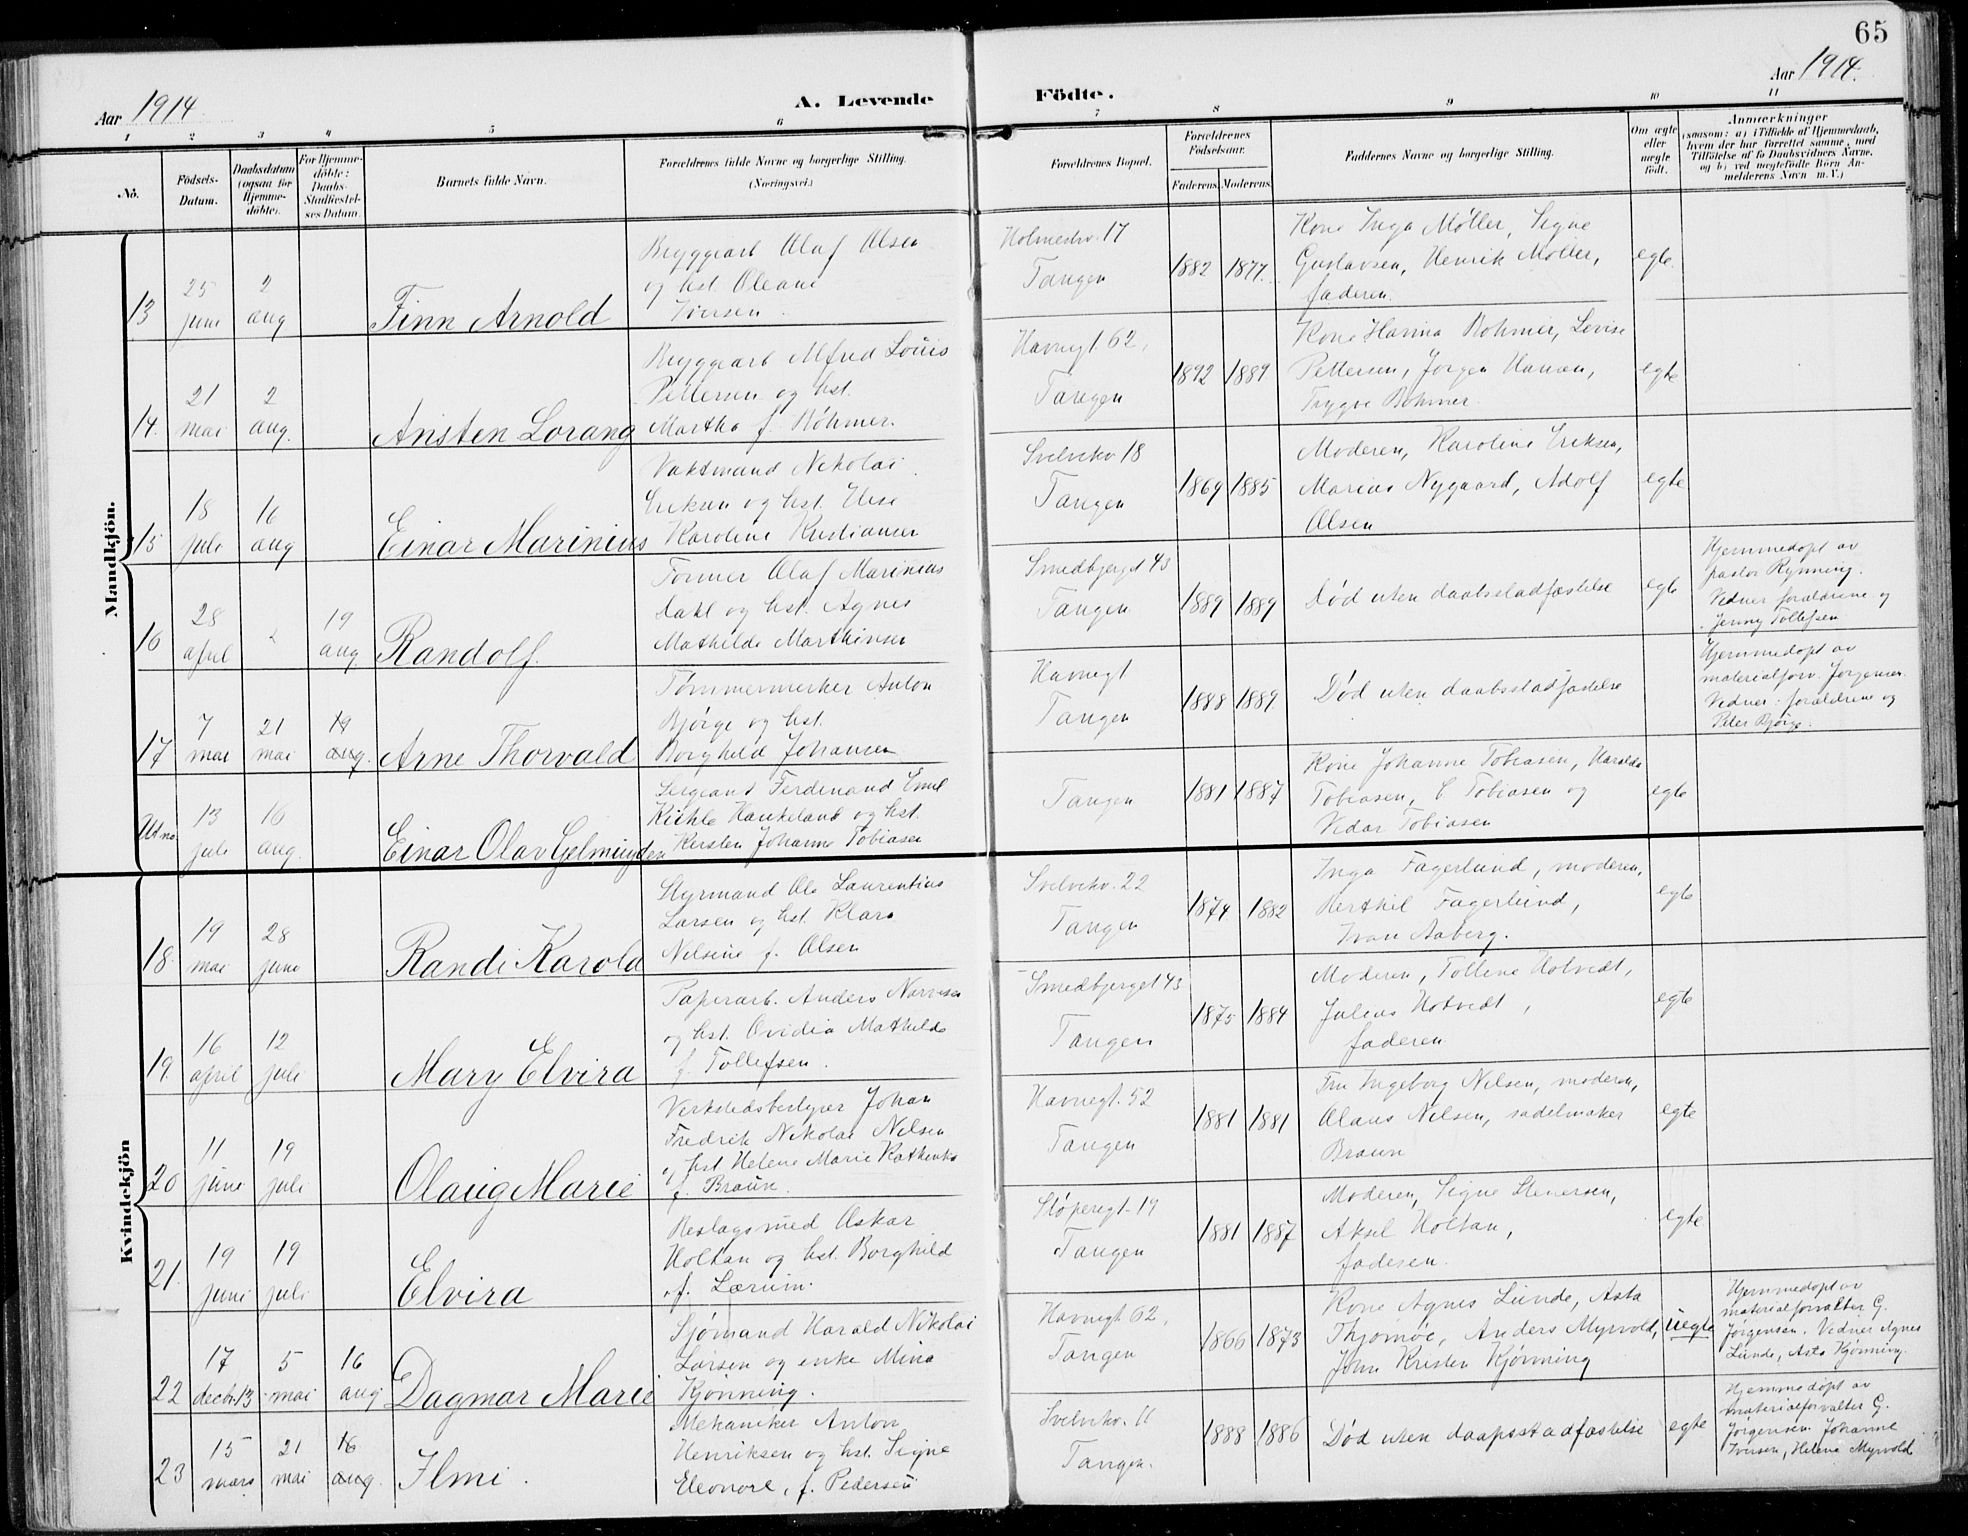 65
Aar 1914.
A. Levende Födte.
Aar 1914.
1 2 3 4 5 6 7 8 9 10 11
No.
Födsels-Datum.
Daabsdatum (ogsaa for Hjemme-döbte).
For Hjemme-döbte: Daabs-Stadfæstel-ses Datum.
Barnets fulde Navn.
Forældrenes fulde Navne og borgerlige Stilling. (Næringsvei.)
Forældrenes Bopæl.
Forældrenes Födselsaar.
Faderens. Moderens.
Faddernes Navne og borgerlige Stilling.
Om ægte eller uægte födt.
Anmærkninger
(saasom: a) i Tilfælde af Hjemmedaab, hvem der har forrettet samme, med Tilföielse af to Daabsvidners Navne, og b) ved uægtefödte Börn An-melderens Navn m. V.)
Mandkjön.
13
25 juni
2 aug
Finn Arnold
Bryggearb Olaf Olsen
og hst. Oleane
Iversen.
Holmestv. 17
Tangen
1882
1877.
Kone Inga Møller, Signe
Gustavsen, Henrik Møller,
faderen.
egte.
14.
21 mai
2 aug.
Ansten Lorang
Bryggearb Alfred Louis
Pettersen og hst.
Martha f. Bøhmer.
Havnegt 62,
Tangen
1892
1889
Kone Hanna Bohmer, Lovise
Pettersen, Jørgen Hansen,
Trygve Bohmer.
egte
15
18 juli
16 aug
Einar Marinius
Vaktmand Nikolai
Eriksen og hst. Else
Karoline Kristiansen
Svelvikv 18
Tangen
1869
1885
Moderen, Karoline Eriksen,
Marius Nygaard, Adolf
Olsen
egte
16
28 april
19 aug
Randolf.
Former Olaf Marinius
Dahl og hst. Agnes
Mathilde Marthinsen
Smedbjerget 43
Tangen
1889
1889
Død uten daabsstadfæstelse
egte
Hjemmedøpt av
pastor Rynning.
Vidner forældrene og
Jenny Tollefsen
17
7 mai
21 mai
19 aug.
Arne Thorvald
Tømmermerker Anton
Bjørge og hst.
Borghild Johansen
Havnegt
Tangen
1888
1889
Død uten daabsstadfæstelse
Hjemmedøpt av
materialforv. Jørgensen.
Vidner: forældrene og
Peter Bjørge.
Utno
13 juli
16 aug.
Einar Olav Gelmuyden
Sergeant Ferdinand Emil
Kiehle Haukeland og hst.
Kersten Johanne Tobiasen
Tangen
1881
1887
Kone Johanne Tobiasen, Haralda
Tobiasen, C Tobiasen og
Vidar Tobiasen
egte
Kvindekjön
18
19 mai
28 juni
Randi Karola
Styrmand Ole Laurentius
Larsen og hst. Klara
Nilsine f. Olsen
Svelvikv. 22
Tangen
1874
1882
Inga Fagerlund, moderen,
Berthil Fagerlund,
Ivar Aaberg.
egte
19.
16 april
12 juli
Mary Elvira
Papirarb. Anders Narvesen
og hst. Ovidia Mathilde
f. Tollefsen.
Smedbjerget 43
Tangen
1875
1884
Moderen, Tolline Hotvedt,
Julius Hotvedt,
faderen
egte
20
11 juni
19 juli
Olaug Marie
Verkstedsbestyrer Johan
Fredrik Nikolai Nilsen
og hst Helene Marie Kathinka
f. Braun.
Havnegt. 52
Tangen
1881
1881
Fru Ingeborg Nilsen, moderen,
Olaus Nilsen, sadelmaker
Braun
egte
21.
19 juni
19 juli
Elvira
Beslagsmed Oskar
Holtan og hst. Borghild
f. Lærum.
Støperegt. 19
Tangen
1881
1887
Moderen, Signe Stenersen,
Aksel Holtan,
faderen.
egte
22
17 decbr. 13
5 mai
16 aug
Dagmar Marie
Sjømand Harald Nikolai
Larsen og enke Mina
Kjønning.
Havnegt 62,
Tangen
1866
1873
Kone Agnes Lunde, Asta
Thjømøe, Anders Myrvold,
John Kristen Kjønning
uegte
Hjemmedøpt av
materialforvalter G.
Jørgensen. Vidner Agnes
Lunde, Asta Kjønning.
23
15 mars
21 mai
16 aug.
Ilmi.
Mekaniker Anton
Henriksen og hst. Signe
Eleonore, f. Pedersen
Svelvikv. 11
Tangen.
1888
1886
Død uten daapsstadfæstelse
egte
Hjemmedøpt av
materialforvalter G.
Jørgensen. Johanne
Iversen, Helene Myrvold